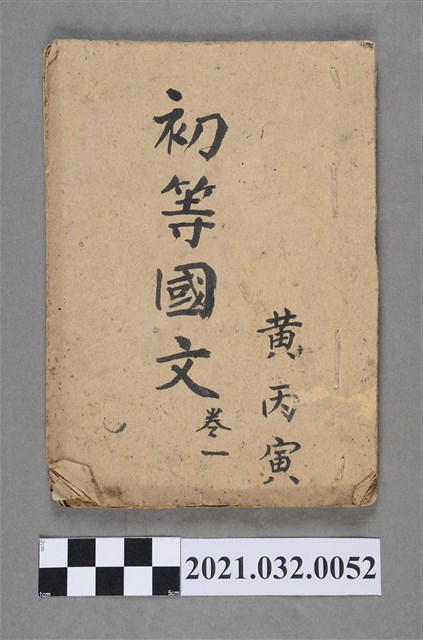 黄丙寅
初等國文
卷一
2cm
1cm
5cm
2021.032.0052